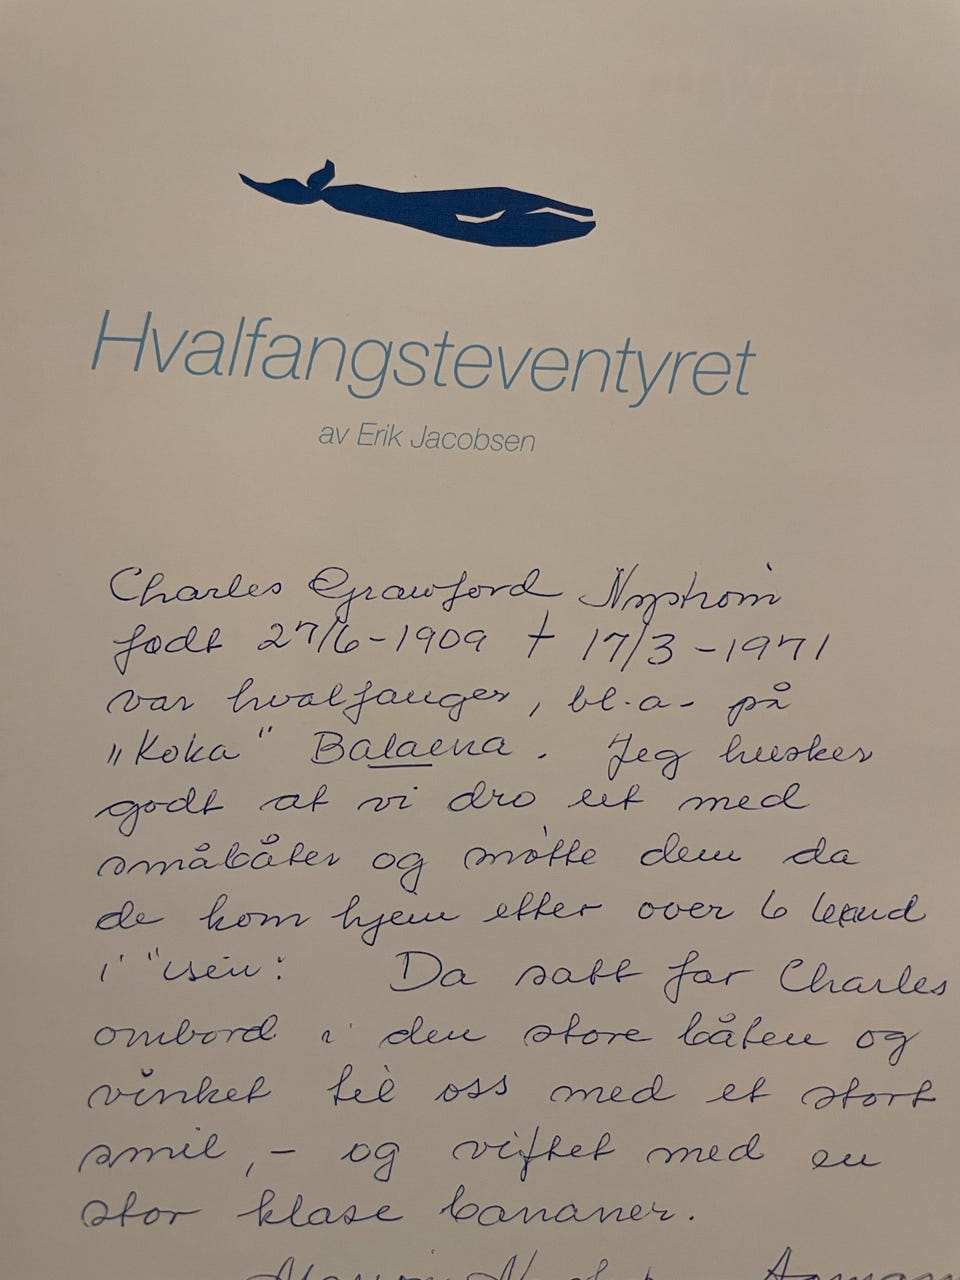 Hvalfangsteventyret
av Erik Jacobsen
Charles Grawford Nyström
født 27/6-1909 † 17/3-1971
var hvalfanger, bl.a. på
„Koka" Balaena. Jeg husker
godt at vi dro ut med
småbåter og møtte dem da
de kom hjem etter over 6 mnd
i "isen". Da satt far Charles
ombord i den store båten og
vinket til oss med et stort
smil, - og viftet med en
stor klase bananer.